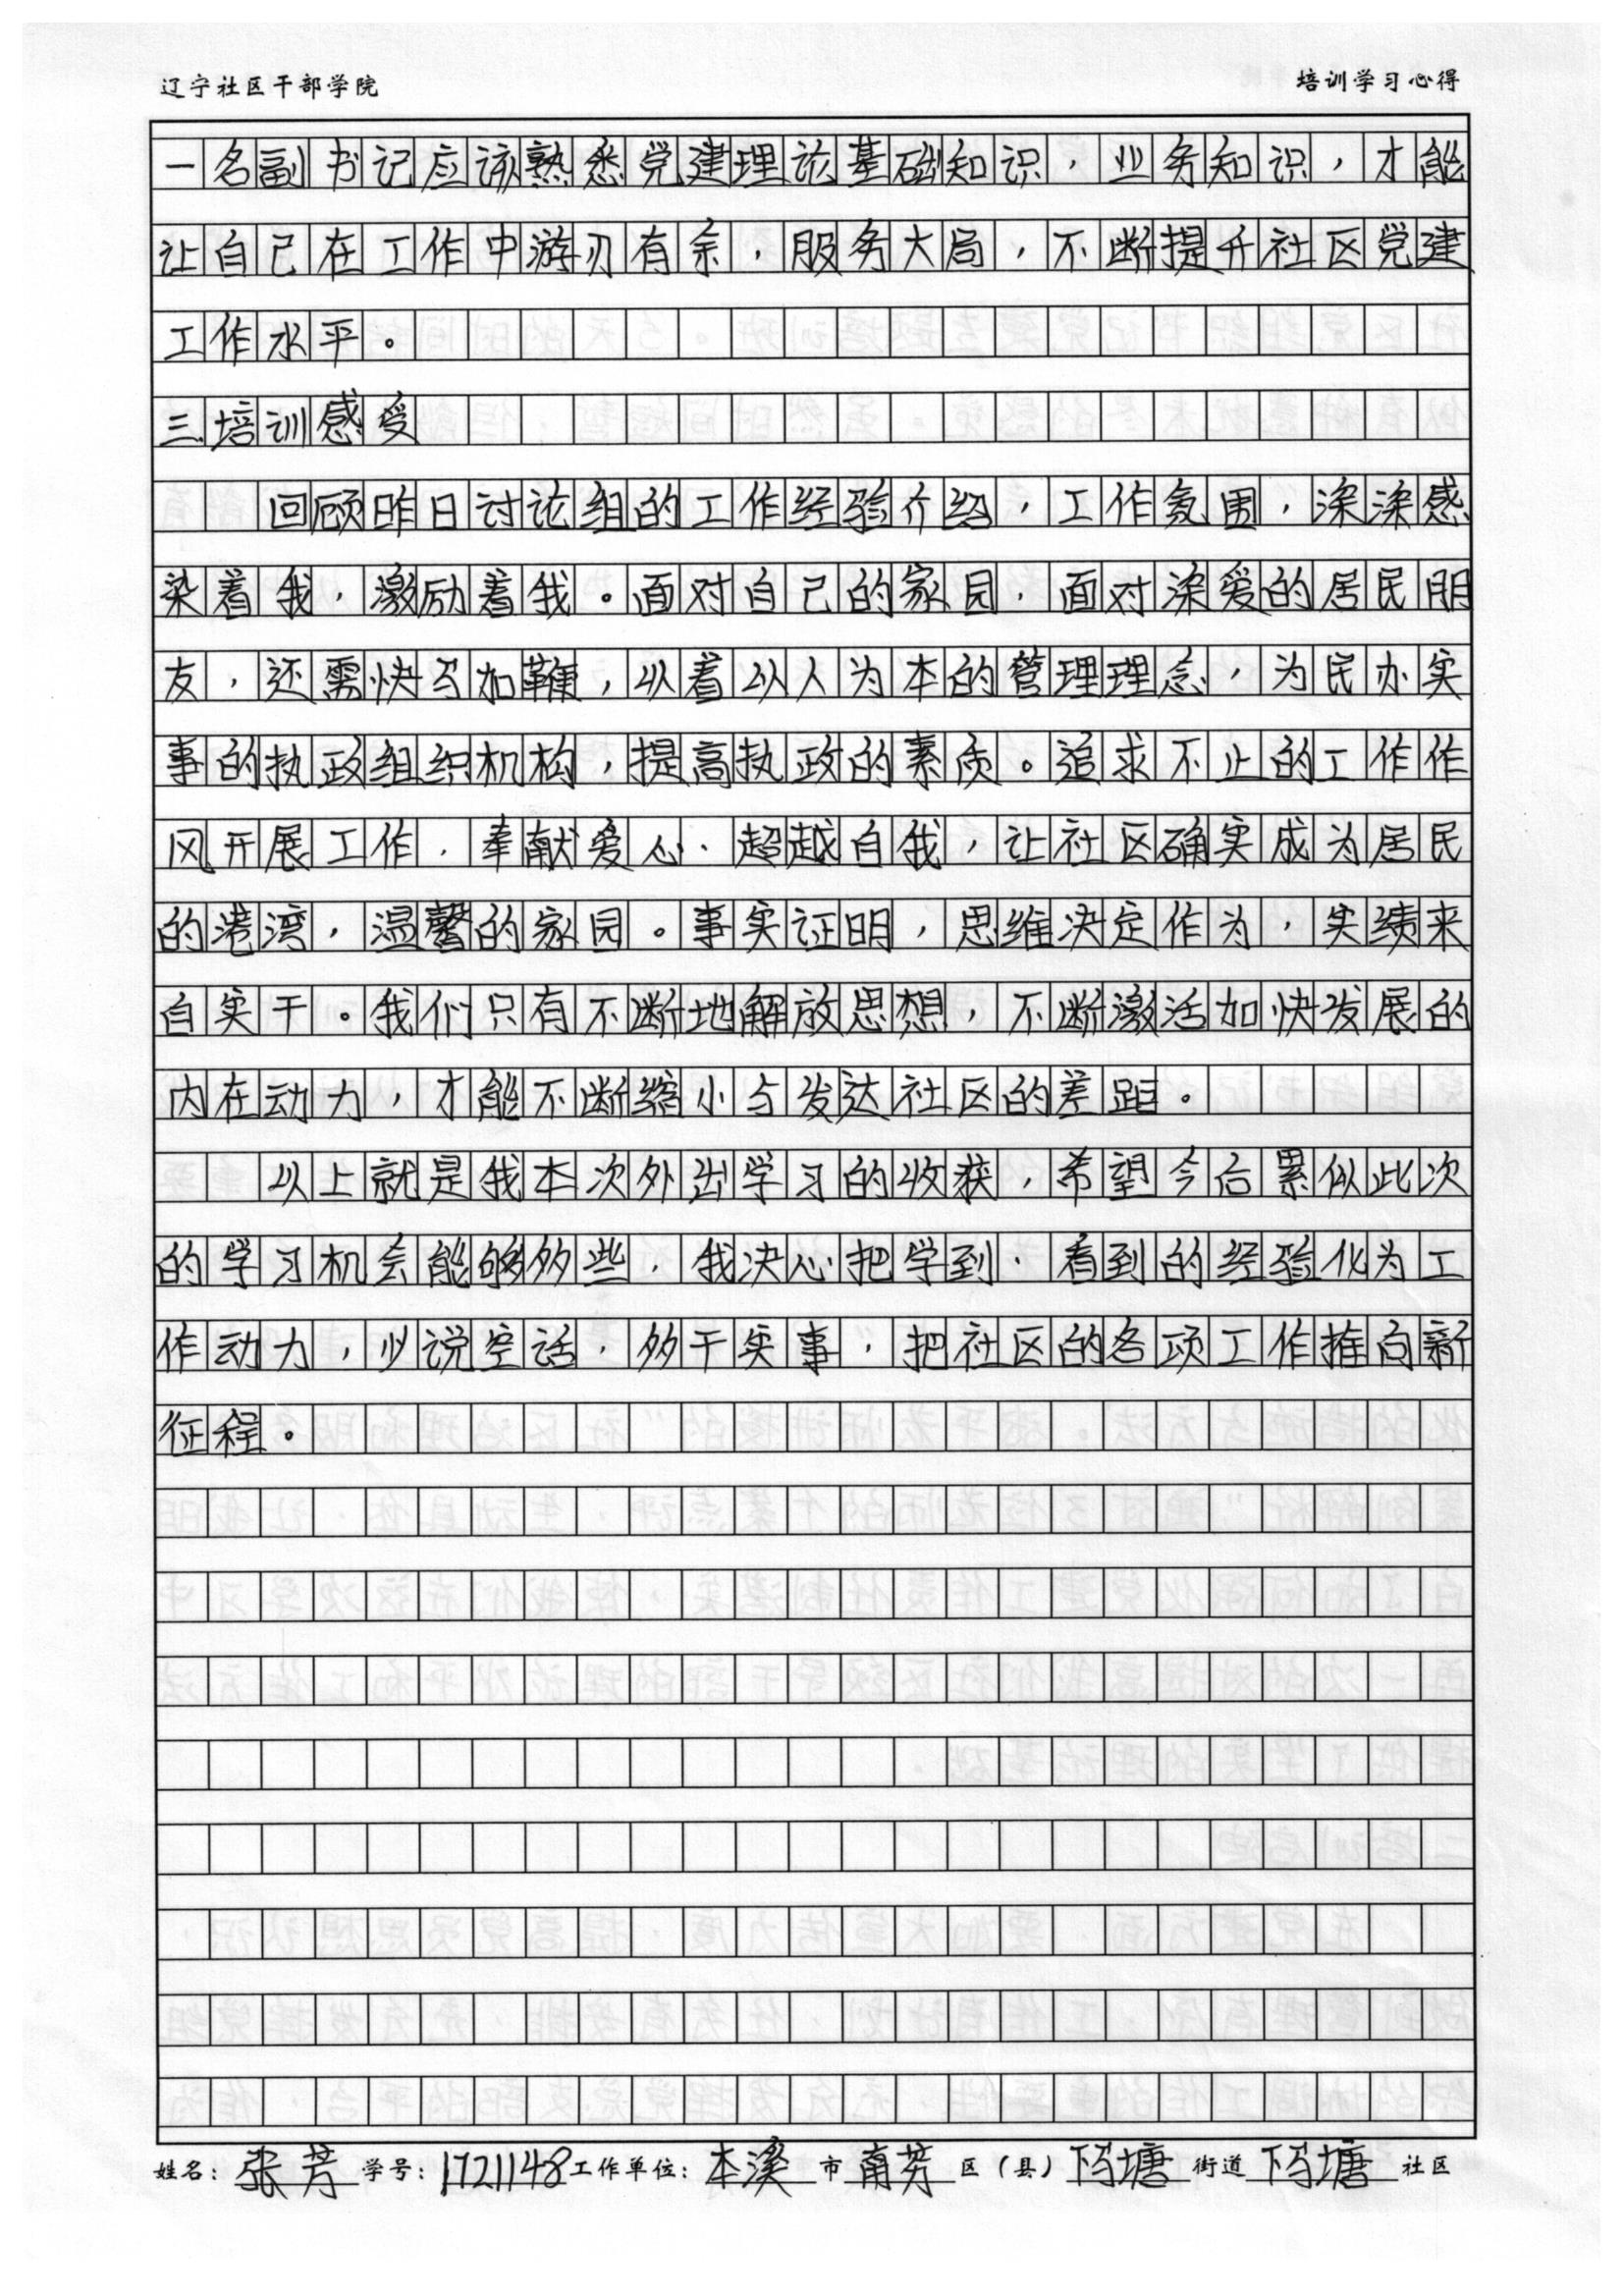 辽宁社区干部学院 培训学习心得
一名副书记应该熟悉党建理论基础知识，业务知识，才能
让自己在工作中游刃有余，服务大局，不断提升社区党建
工作水平。
三.培训感受
回顾昨日讨论组的工作经验介绍，工作氛围，深深感
染着我，激励着我。面对自己的家园，面对深爱的居民朋
友，还需快马加鞭，以着以人为本的管理理念，为民办实
事的执政组织机构，提高执政的素质。追求不止的工作作
风开展工作，奉献爱心、超越自我，让社区确实成为居民
的港湾，温馨的家园。事实证明，思维决定作为，实绩来
自实干。我们只有不断地解放思想，不断激活加快发展的
内在动力，才能不断缩小与发达社区的差距。
以上就是我本次外出学习的收获，希望今后累似此次
的学习机会能够多些，我决心把学到、看到的经验化为工
作动力，少说空话，多干实事，把社区的各项工作推向新
征程。
姓名：张芳 学号：1721148 工作单位：本溪 市 南芬 区（县） 下马塘 街道 下马塘 社区